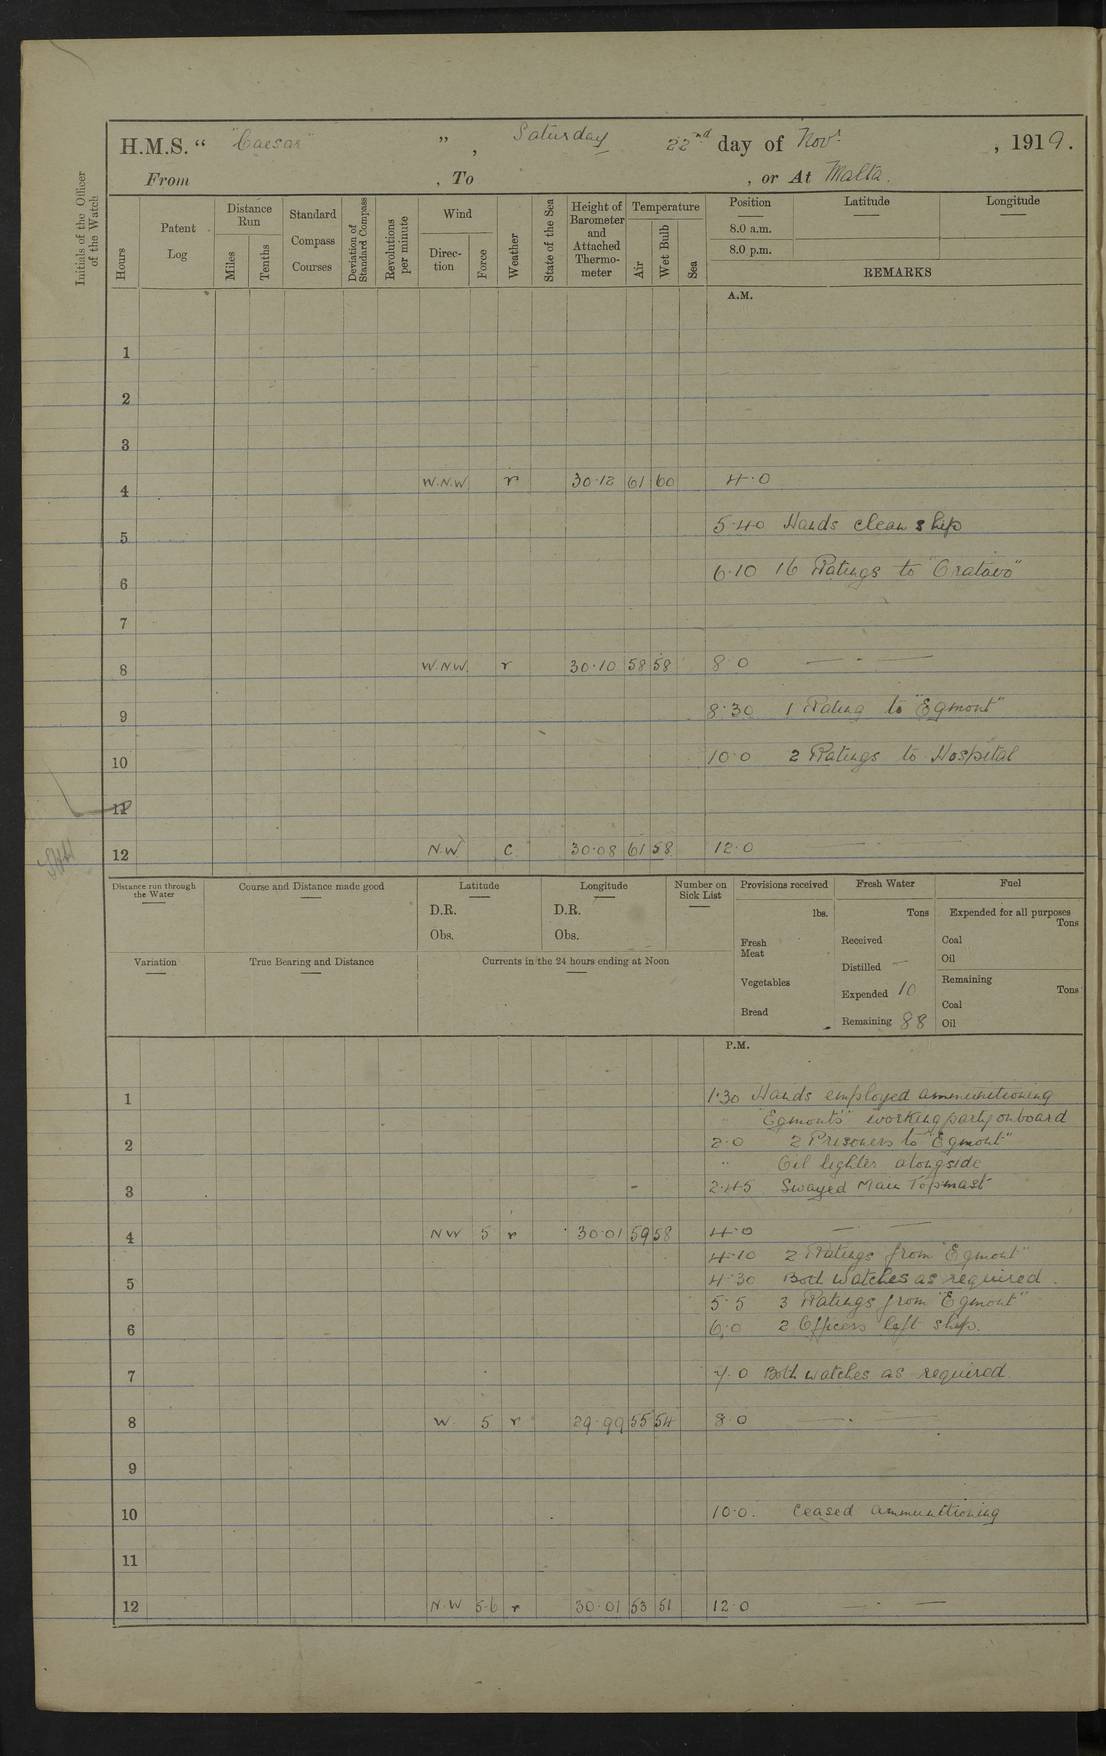 H.M.S. " "Caesar" ", Saturday 22nd day of Novr , 1919.
From , To , or At Malta.
Initials of the Officer of the Watch
Hours
Patent Log
Distance Run
Miles
Tenths
Standard Compass Courses
Deviation of Standard Compass
Revolutions per minute
Wind
Direction
Force
Weather
State of the Sea
Height of Barometer and Attached Thermometer
Temperature
Air
Wet Bulb
Sea
Position
8.0 a.m.
8.0 p.m.
Latitude
Longitude
REMARKS
A.M.
1
2
3
4 W.N.W. r 30·12 61 60 4·0
5 5·40 Hands clean ship
6 6·10 16 Ratings to
7
8 W.N.W. r 30·10 58 58 8·0 — · —
9 8·30 1 Rating to "Egmont"
10 10·0 2 Ratings to Hospital
11
12 N.W c 30·08 61 58 12·0 — —
Distance run through the Water
Course and Distance made good
Latitude
D.R.
Obs.
Longitude
D.R.
Obs.
Number on Sick List
Provisions received
lbs.
Fresh Meat
Vegetables
Bread
Fresh Water
Tons
Received
Distilled —
Expended 10
Remaining 88
Fuel
Expended for all purposes
Tons
Coal
Oil
Remaining
Tons
Coal
Oil
Variation
True Bearing and Distance
Currents in the 24 hours ending at Noon
P.M.
1 1·30 Hands employed ammunitioning
"Egmont's" working party onboard
2 2·0 2 Prisoners to "Egmont"
" Oil lighter alongside
3 2·45 Swayed Main Topmast
4 NW 5 r 30·01 59 58 4·0 — —
4·10 2 Ratings from "Egmont"
5 4·30 Both Watches as required.
5·5 3 Ratings from "Egmont"
6 6·0 2 Officers left ship.
7 7·0 Both watches as required.
8 W. 5 r 29·99 55 54 8·0 — · —
9
10 10·0. Ceased ammunitioning
11
12 N.W 5-6 r 30·01 53 51 12·0 — · —